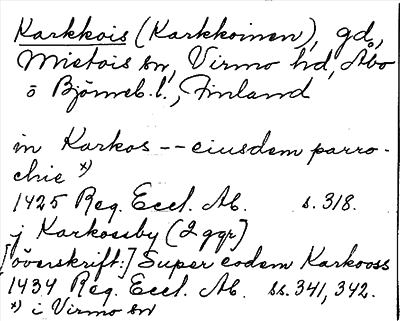 Karkkois (Karkkoinen), gd,
Mietois sn, Virmo hd, Åbo
o Björneb. l., Finland
in Karkos -- eiusdem parro-
chie x)
1425 Reg. Eccl. Ab. s. 318.
j Karkosby (2 ggr)
[överskrift:] Super eodem Karkooss
1434 Reg. Eccl. Ab. ss. 341, 342.
x) i Virmo sn